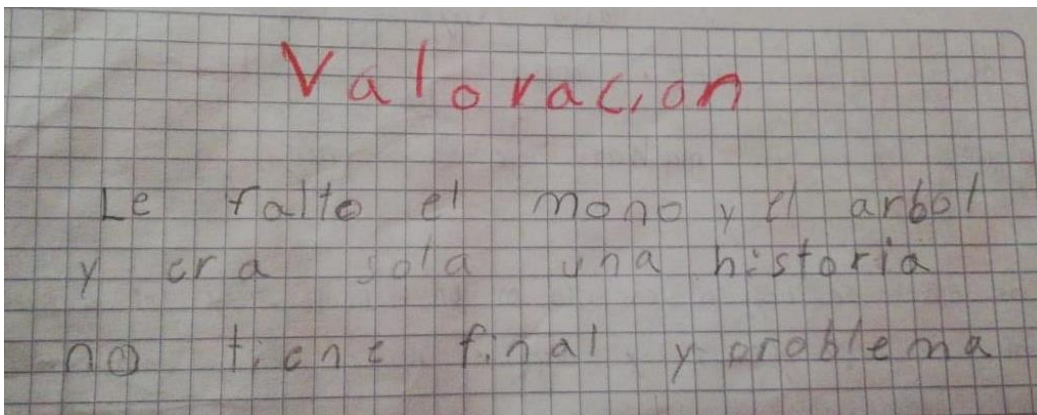 Valoracion
Le falto el mono y el arbol
y era sola una historia
no tiene final y problema